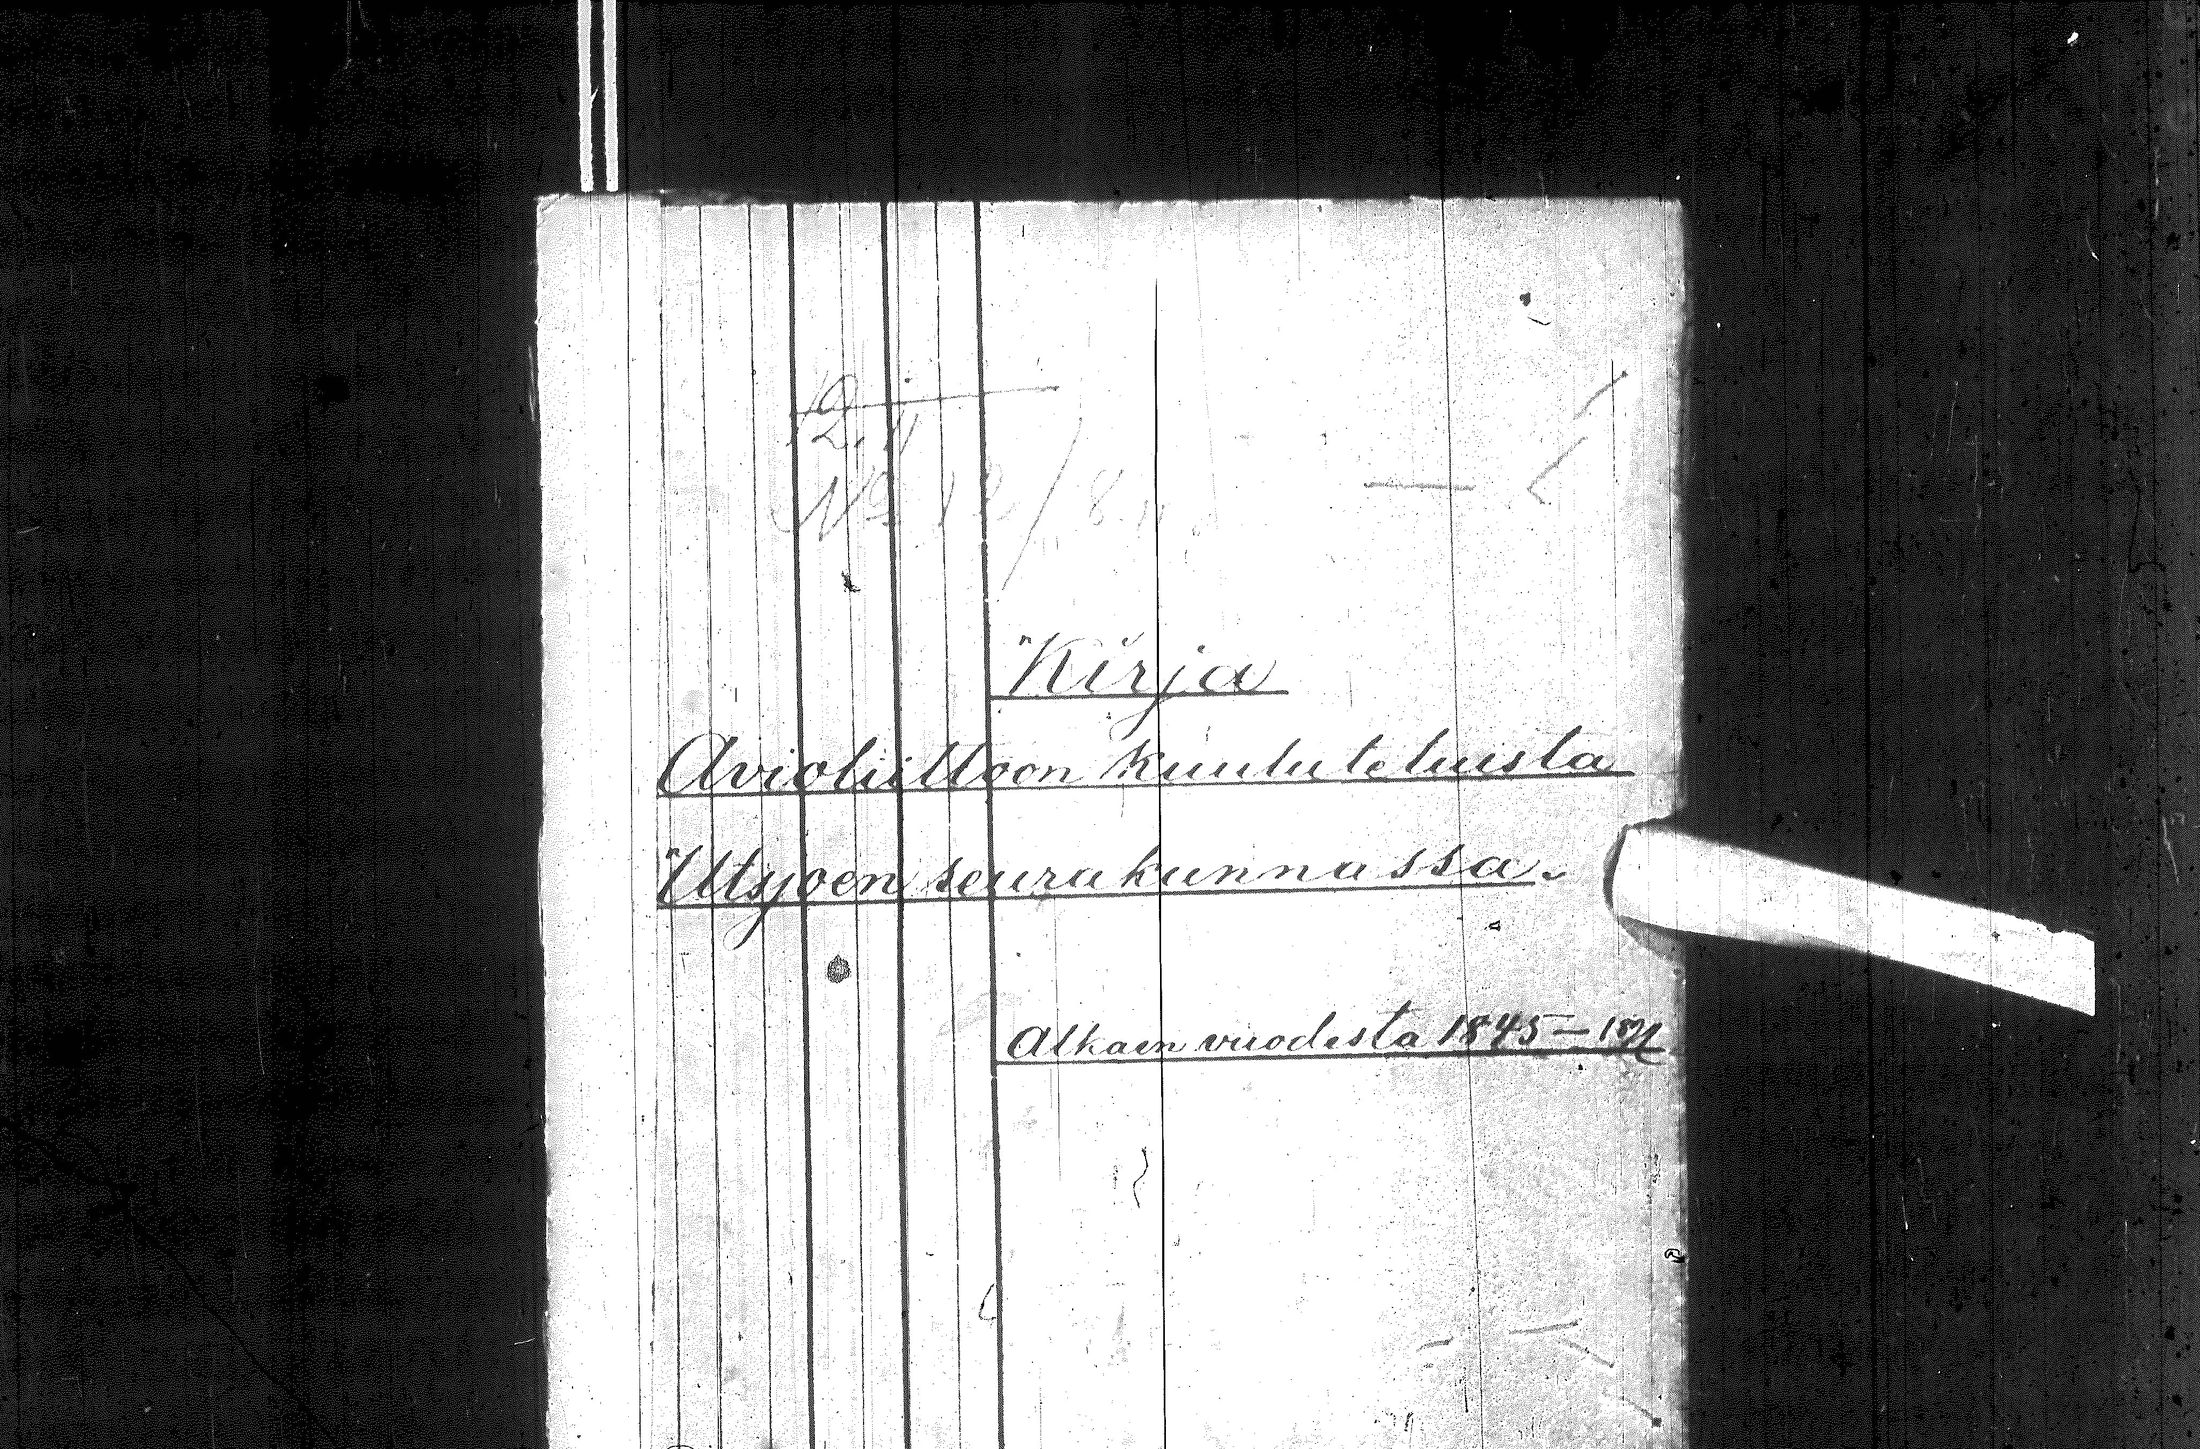 No 12/
Kirja
Avioliittoon kuulutetuista
Utsjoen seurakunnassa.
Alkaen vuodesta 1845 —